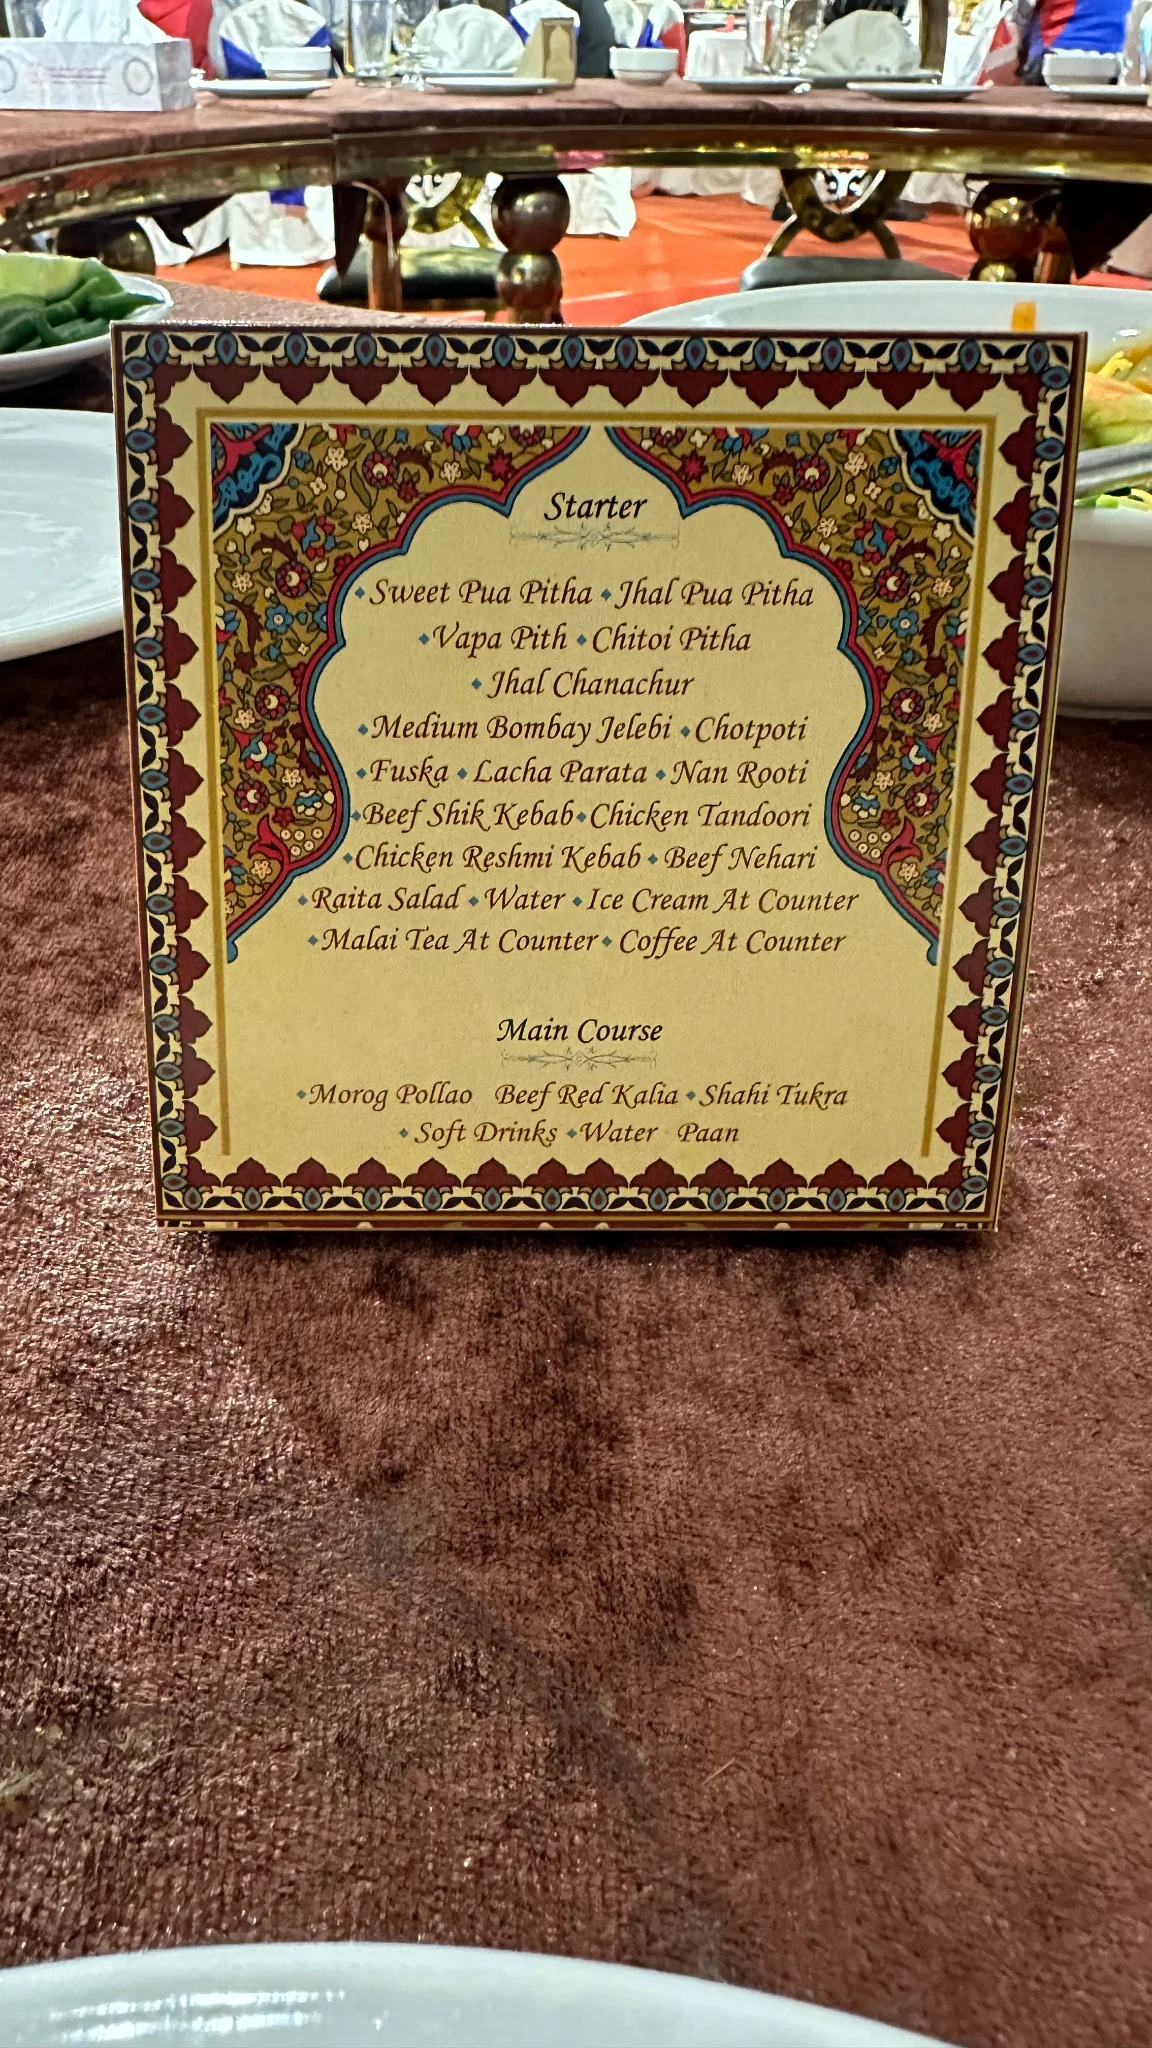 Starter
Sweet Pua Pitha Jhal Pua Pitha
Vapa Pith Chitoi Pitha
Jhal Chanachur
Medium Bombay Jelebi Chotpoti
Fuska Lacha Parata Nan Rooti
Beef Shik Kebab Chicken Tandoori
Chicken Reshmi Kebab Beef Nehari
Raita Salad Water Ice Cream At Counter
Malai Tea At Counter Coffee At Counter
Main Course
Morog Pollao Beef Red Kalia Shahi Tukra
Soft Drinks Water Paan